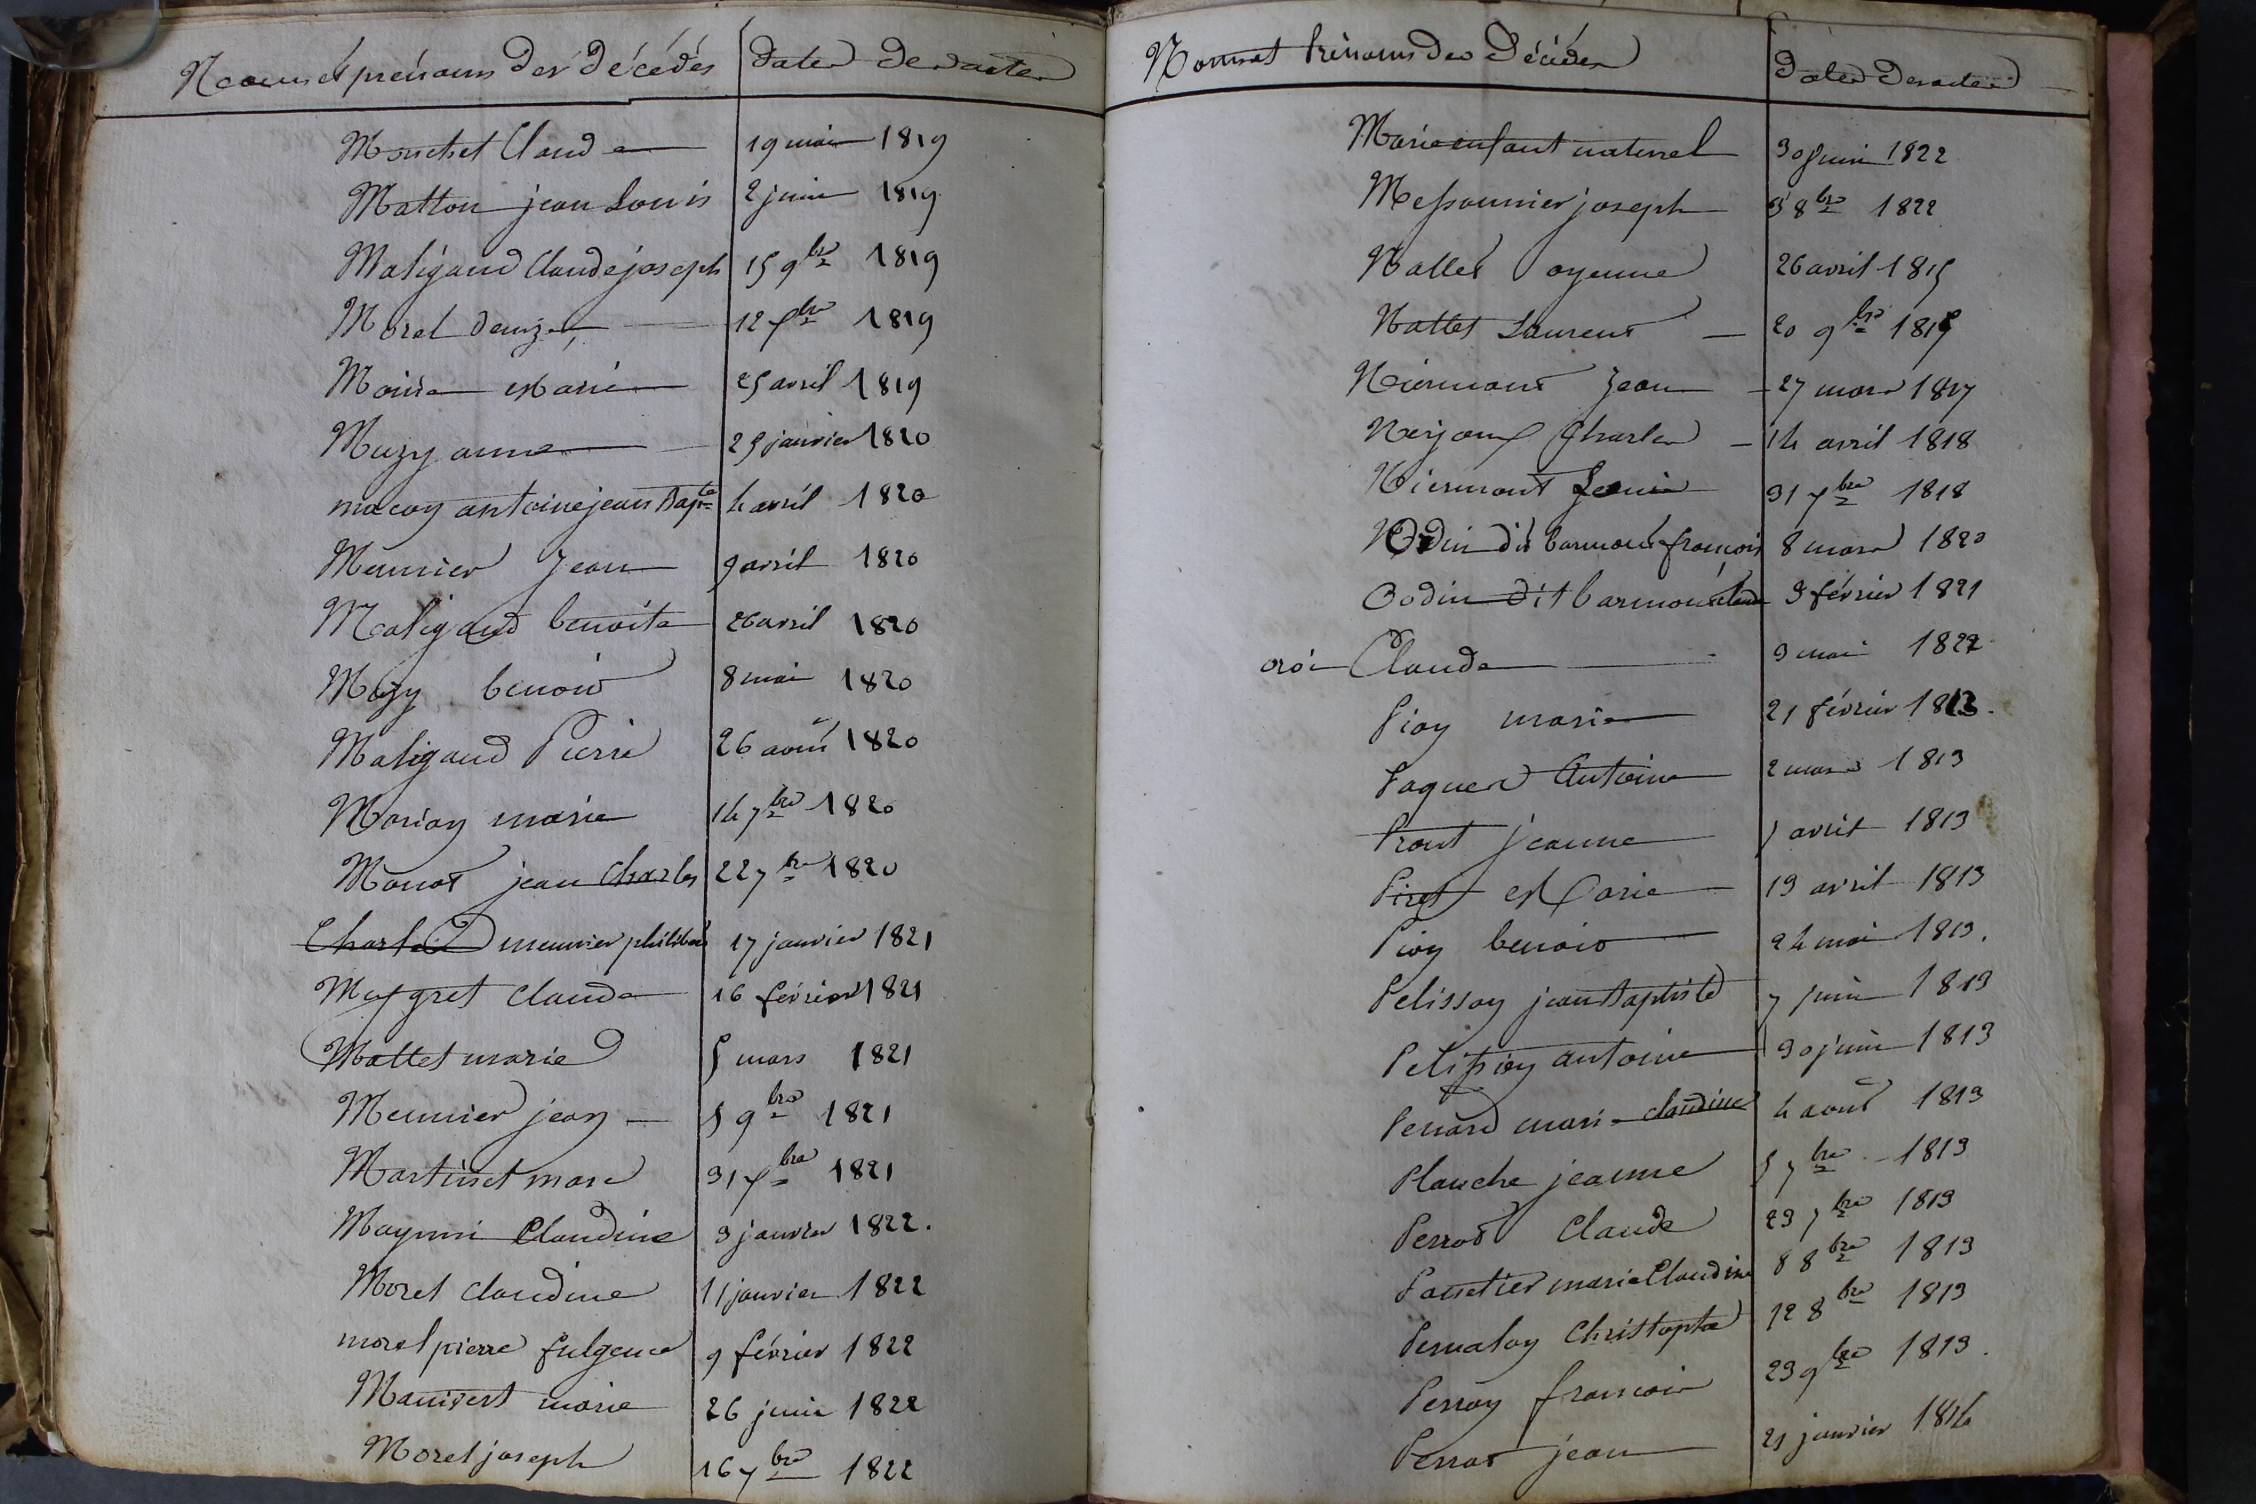 Noms et prénoms des décédés dates des actes
Mouchet Claude 19 mai 1819
Matton jean Louis 2 juin 1819
Maligaud Claude joseph 15 9bre 1819
Morel denize 12 xbre 1819
Marie 25 avril 1819
Muzy anne 25 janvier 1820
macoy antoine jean Bapte 4 avril 1820
Meunier Jean 9 avril 1820
Maligaud benoite 26 avril 1820
Mazy benoit 8 mai 1820
Maligaud Pierre 26 août 1820
Marioy marie 14 7bre 1820
Monot jean Charles 22 7bre 1820
Charles meunier philibert 17 janvier 1821
Maygret Claude 16 février 1821
Mattet marie 5 mars 1821
Meunier jean 5 9bre 1821
Martinet marc 31 xbre 1821
Claudine 3 janvier 1822.
Morel claudine 11 janvier 1822
morel pierre fulgence 9 février 1822
Manivert marie 26 juin 1822
Morel joseph 16 7bre 1822
Noms et Prénoms des Décédés Dates des actes
Marie enfant naturel 30 juin 1822
Messonnier joseph 3 8bre 1822
Nallet oyenne 26 avril 1815
Nattet Laurent 20 9bre 181
Niermont Jean 27 mars 1817
Nerjoux Charles 14 avril 1818
Niermont 31 7bre 1818
Odin dit barmont françois 8 mars 1820
Oodin dit barmont 3 février 1821
Claude 3 mai 1822
Pioy marie 21 février 1813.
Paquet Antoine 2 mars 1813
Prout jeanne 5 avril 1813
Piret Marie 19 avril 1813
Pioy benoit 24 mai 1813.
Pelissoy jean Baptiste 7 juin 1813
Antoine 30 juin 1813
Penard marie claudine 4 août 1813
Planche jeanne 5 7bre 1813
Perrot Claude 23 7bre 1813
marie Claudine 8 8bre 1813
Pernaloy Christophe 12 8bre 1813
Perroy françois 23 9bre 1813.
Perrot jean 21 janvier 1814